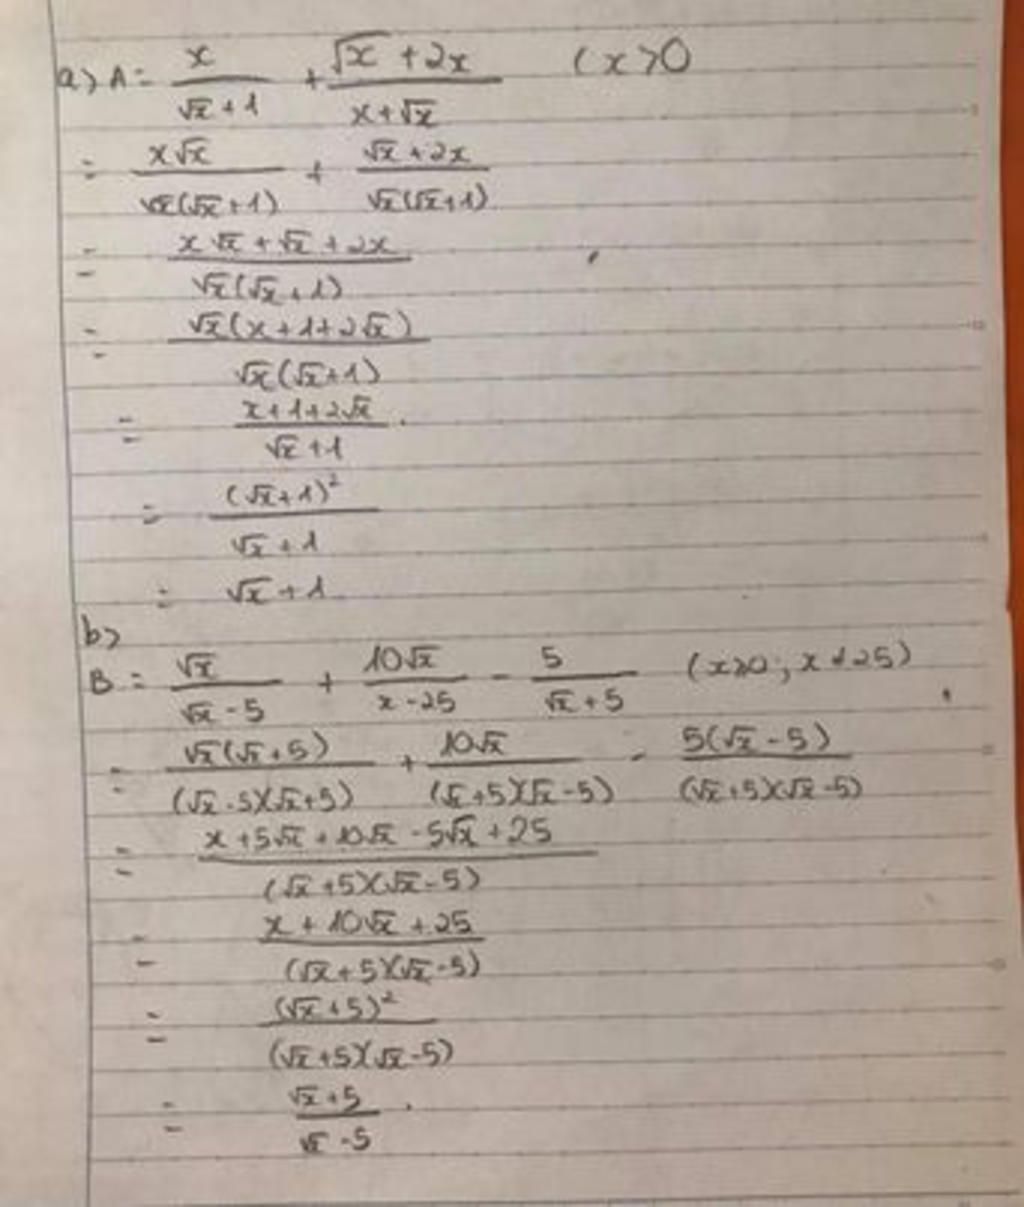 a) A = x/(√x + 1) + (√x + 2x)/(x + √x) (x > 0
= x√x/(√x(√x + 1)) + (√x + 2x)/(√x(√x + 1))
= (x√x + √x + 2x)/(√x(√x + 1))
= √x(x + 1 + 2√x)/(√x(√x + 1))
= (x + 1 + 2√x)/(√x + 1)
= (√x + 1)²/(√x + 1)
= √x + 1
b)
B = √x/(√x - 5) + 10√x/(x - 25) - 5/(√x + 5) (x ≥ 0 ; x ≠ 25)
= √x(√x + 5)/((√x - 5)(√x + 5)) + 10√x/((√x + 5)(√x - 5)) - 5(√x - 5)/((√x + 5)(√x - 5))
= (x + 5√x + 10√x - 5√x + 25)/((√x + 5)(√x - 5))
= (x + 10√x + 25)/((√x + 5)(√x - 5))
= (√x + 5)²/((√x + 5)(√x - 5))
= (√x + 5)/(√x - 5)